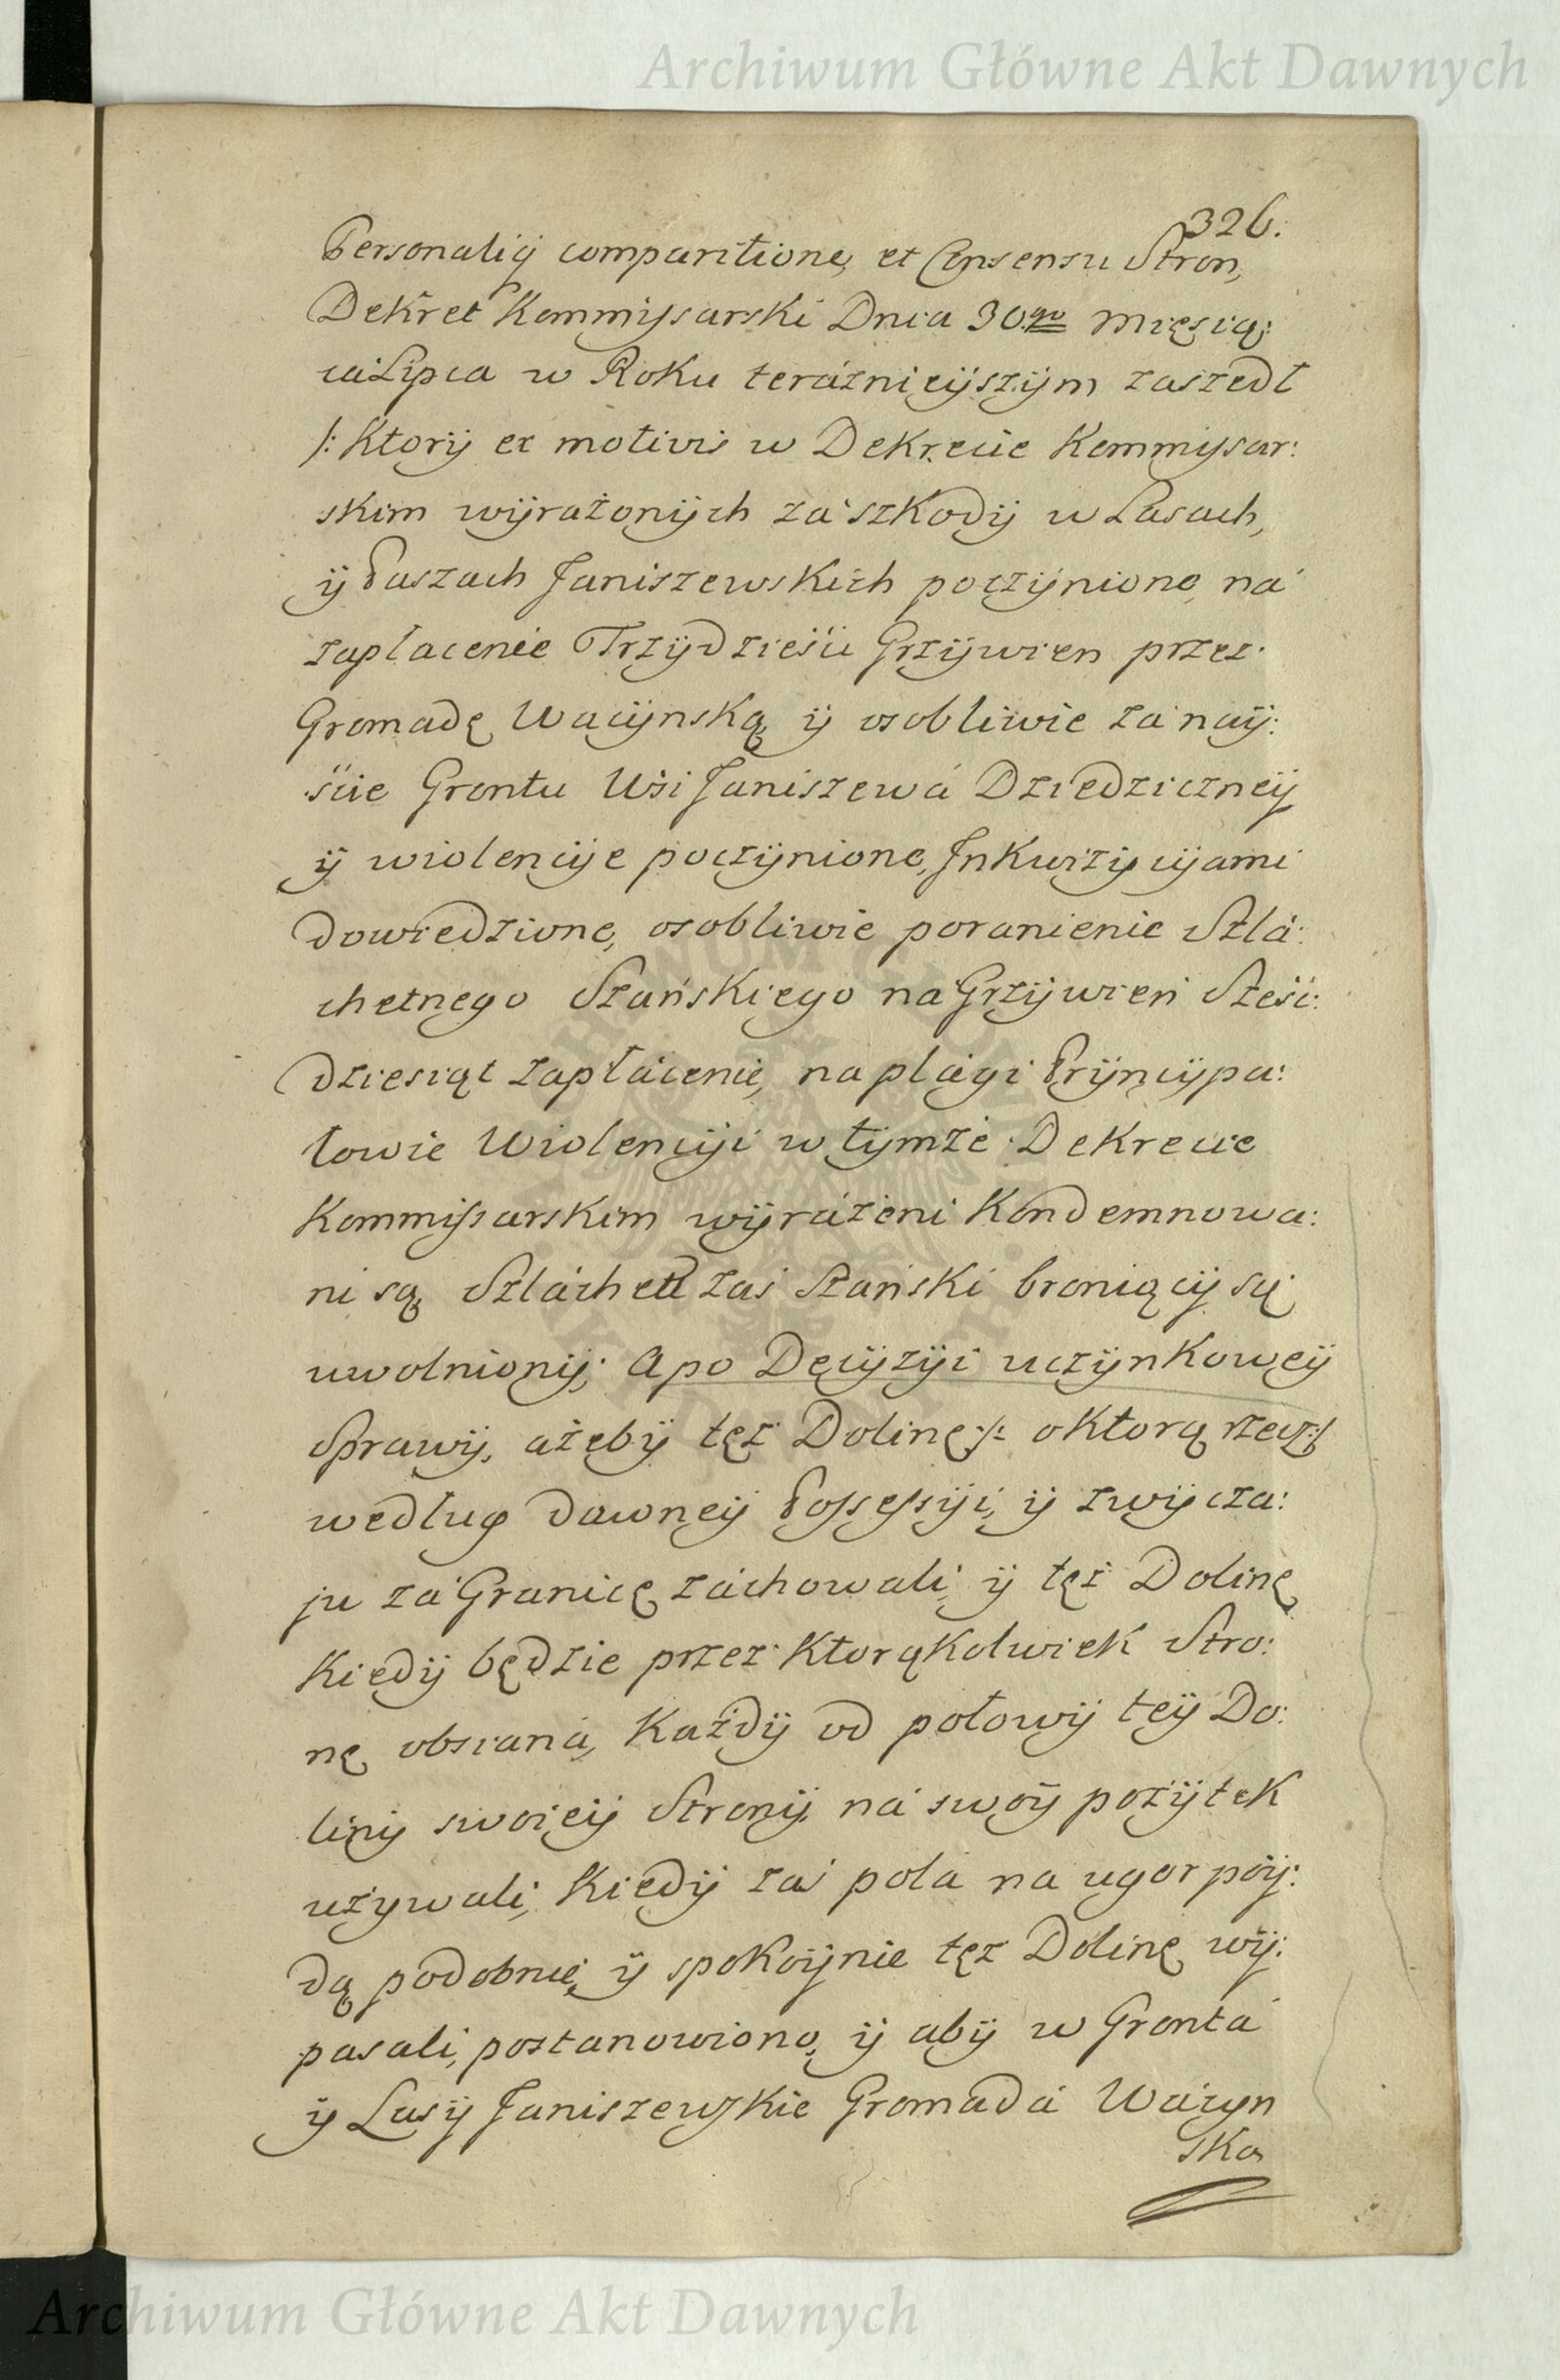 Archiwum Główne Akt Dawnych
326.
Personaliÿ comparitione, et Consensu Stron,
Dekret Kommissarski Dnia 30.go Miesią:
ca Lipca w Roku teráznieÿszÿm zaszedł
/: Ktorÿ ex motivis w Dekrecie Kommissar:
skim wÿrażonÿch zá szkodÿ w Lasach,
ÿ Paszach Janiszewskich poczÿnione, ná
zapłacenie Trzÿdzieśći Grzÿwien przez
Gromadę Wacÿnską, ÿ osobliwie zá naÿ:
śćie Grontu Wśi Janiszewá Dziedziczneÿ
ÿ wiolencÿe poczÿnione, Inkwizÿcÿami
dowiedzione, osobliwie poranienie Szlá:
chetnego Stańskiego na Grzÿwien Sześć:
dziesiąt zapłácenie, na plági Prÿncÿpa:
łowie Wiolencÿi w tÿmże Dekrecie
Kommissarskim wÿráżeni Kondemnowa:
ni są, Szláchett zaś Stański broniącÿ się
uwolnionÿ; A po Decÿzÿi uczÿnkoweÿ
Sprawÿ, ażebÿ tęż Dolinę /: o ktorą rzecz :/
według dawneÿ Possessÿi, ÿ zwÿcza:
ju zá Granicę záchowali, ÿ tęż Dolinę
Kiedÿ będzie przez Ktorąkolwiek Stro:
nę obsianá, Każdÿ od połowÿ teÿ Do:
linÿ swoieÿ Stronÿ, ná swoÿ pożÿtek
użÿwali, Kiedÿ zaś polá na ugor poÿ:
dą podobnie, ÿ spokoÿnie tęż Dolinę wÿ:
pasali, postanowiono, ÿ abÿ w Grontá
ÿ Lasÿ Janiszewskie Gromadá Wácÿn
ska
Archiwum Główne Akt Dawnych